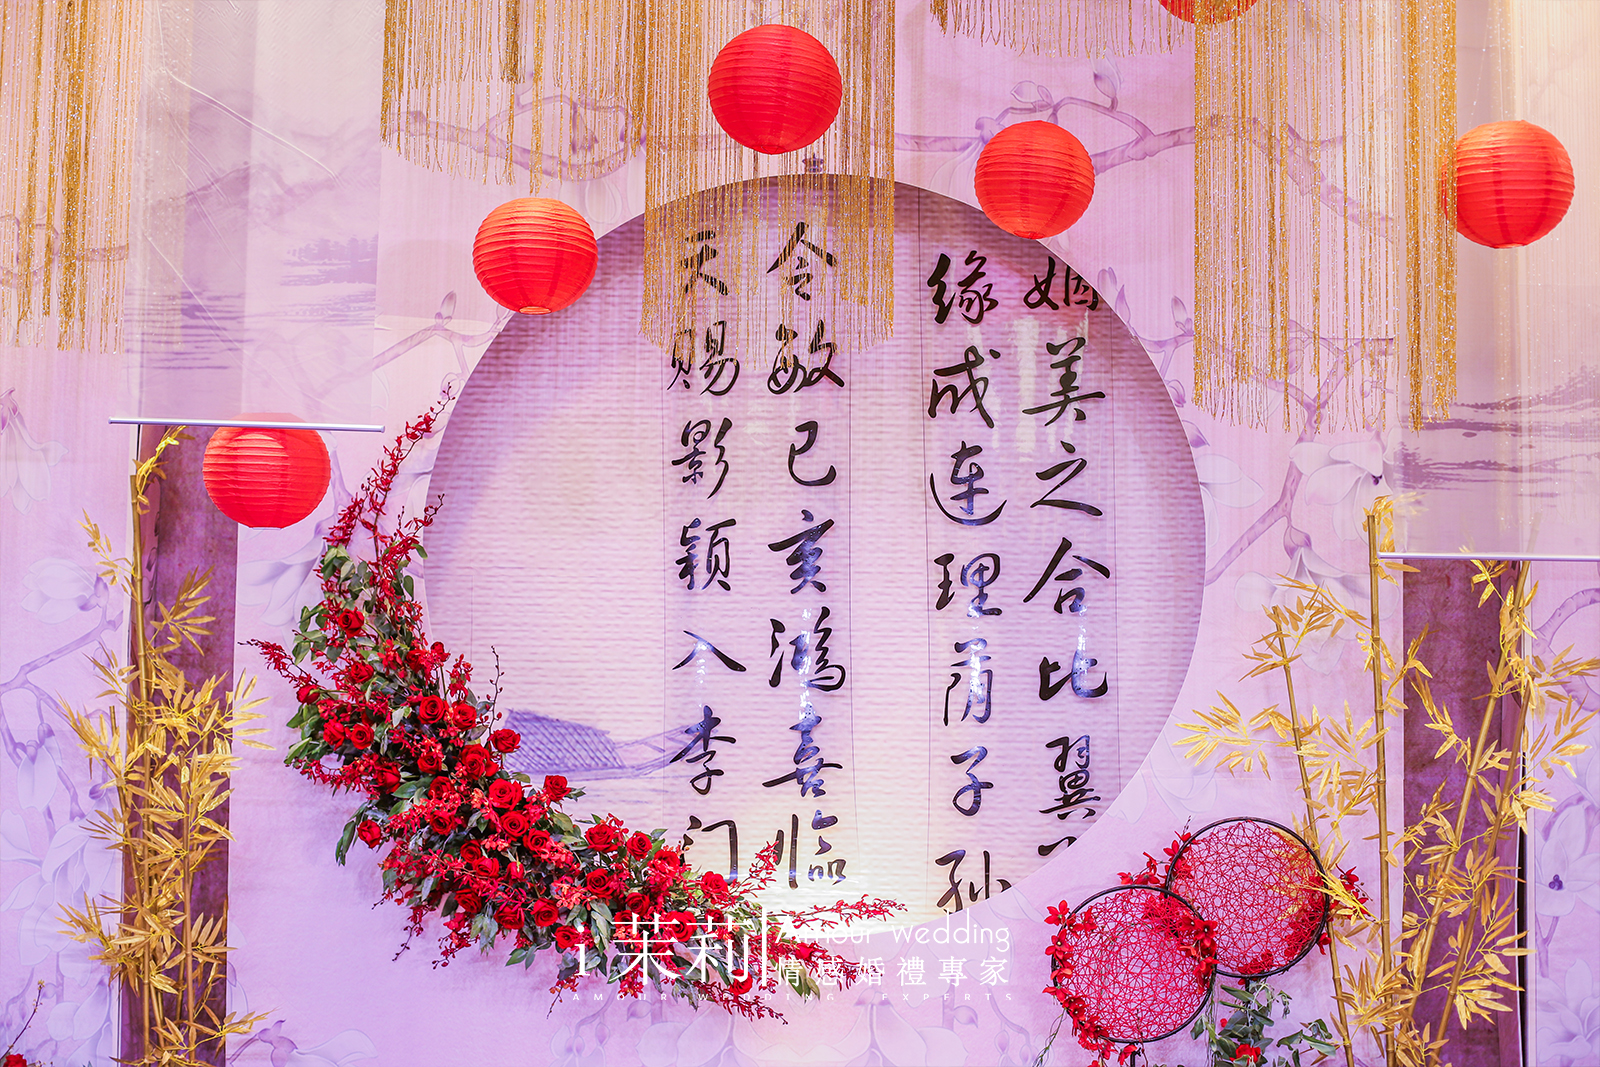 姻美之合比翼
缘成连理荫子孙
令敏已亥鸿喜临
天赐影颖入李门
i 茉莉 Amour wedding
情感婚禮專家
AMOUR WEDDING EXPERTS